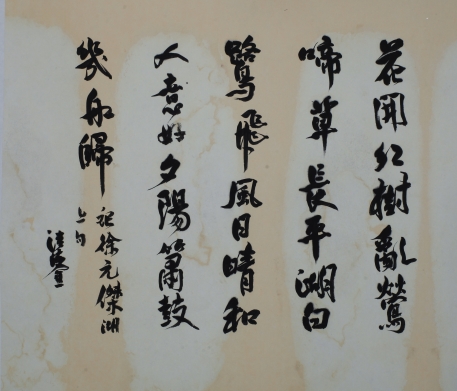 花開紅樹亂鶯
啼草長平湖白
鷺飛風日晴和
人意好夕陽簫鼓
幾船歸
徐元傑湖
上句